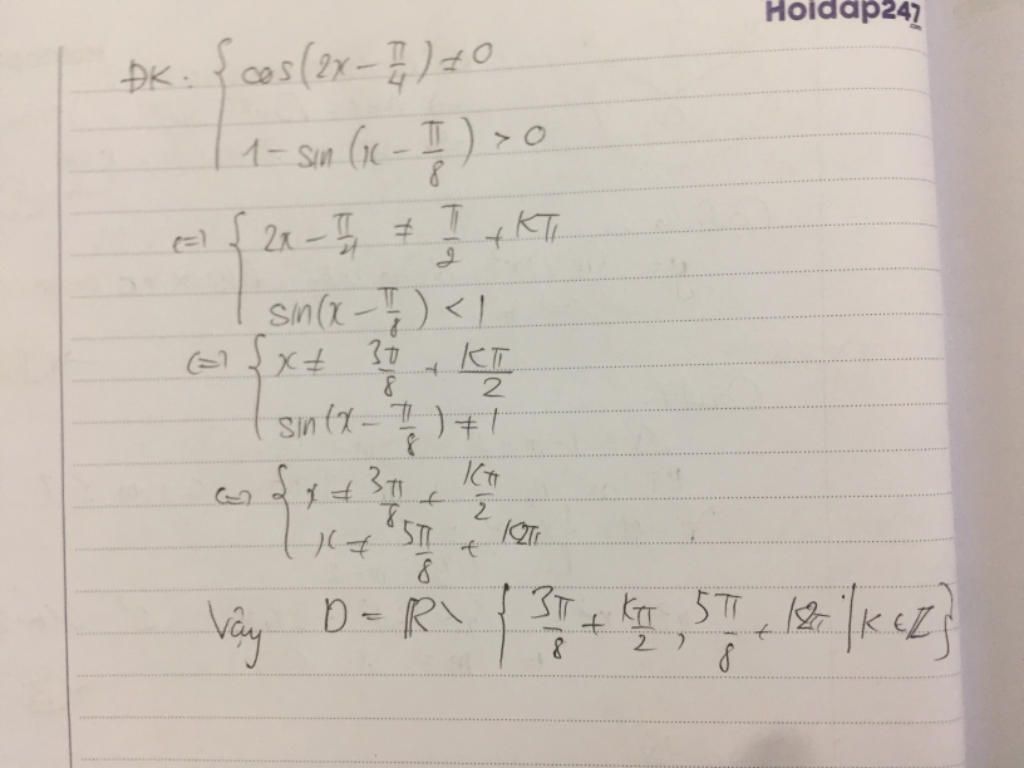 Hoidap247
ĐK: { cos(2x - π/4) ≠ 0
1 - sin(x - π/8) > 0
(=) { 2x - π/4 ≠ π/2 + kπ
sin(x - π/8) < 1
(=) { x ≠ 3π/8 + kπ/2
sin(x - π/8) ≠ 1
(=) { x ≠ 3π/8 + kπ/2
x ≠ 5π/8 + k2π
Vậy D = ℝ \ { 3π/8 + kπ/2, 5π/8 + k2π | k ∈ ℤ }